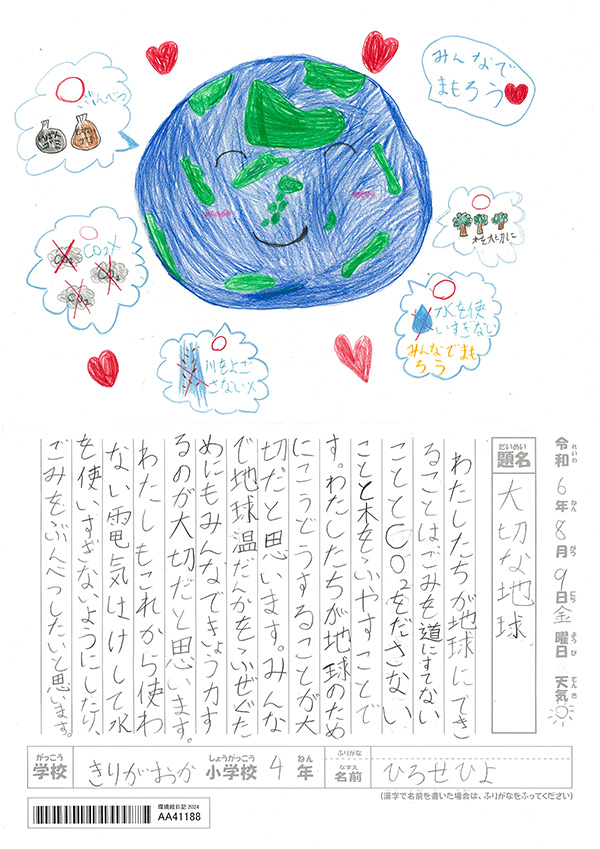 みんなで
まもろう
ぶんべつ
もえない
ゴミ
もえる
ゴミ
CO2×
CO2
CO2
CO2
木を大切に
水を使
いすぎない
みんなでまも
ろう
川をよご
さない×
令和6年8月9日金曜日 天気
れいわ ねん がつ にち ようび てんき
だいめい
題名
大切な地球
わたしたちが地球にでき
ることはごみを道にすてない
こととCO2をださない
ことと木をふやすことで
す。わたしたちが地球のため
にこうどうすることが大
切だと思います。みんな
で地球温だんかをふせぐた
めにもみんなできょう力す
るのが大切だと思います。
わたしもこれから使わ
ない電気はけして水
を使いすぎないようにしたり、
ごみをぶんべつしたいと思います。
がっこう
学校
きりがおか
しょうがっこう
小学校
4
ねん
年
ふりがな
なまえ
名前
ひろせひよ
(漢字で名前を書いた場合は、ふりがなをふってください)
環境絵日記 2024
AA41188